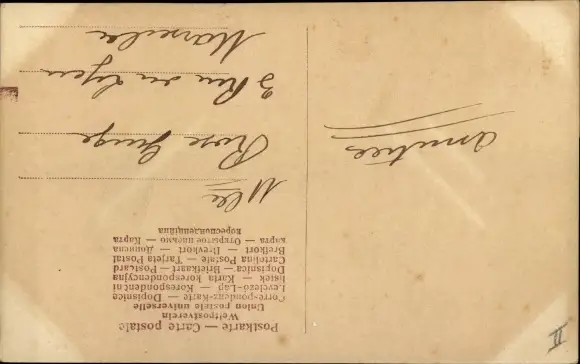 Postkarte — Carte postale
Weltpostverein
Union postale universelle
Correspondenz-Karte — Dopisnice
Levelező-Lap — Korespondenční
lístek — Karta korespondencyjna
Dopisnica — Briefkaart — Postcard
Cartolina Postale — Tarjeta Postal
Brefkort — Brevkort — Дописна
карта — Открытое письмо — Карта
кореспонденцiйна
Mlle
Rose
3 Rue
Marseille
Amitiés
II